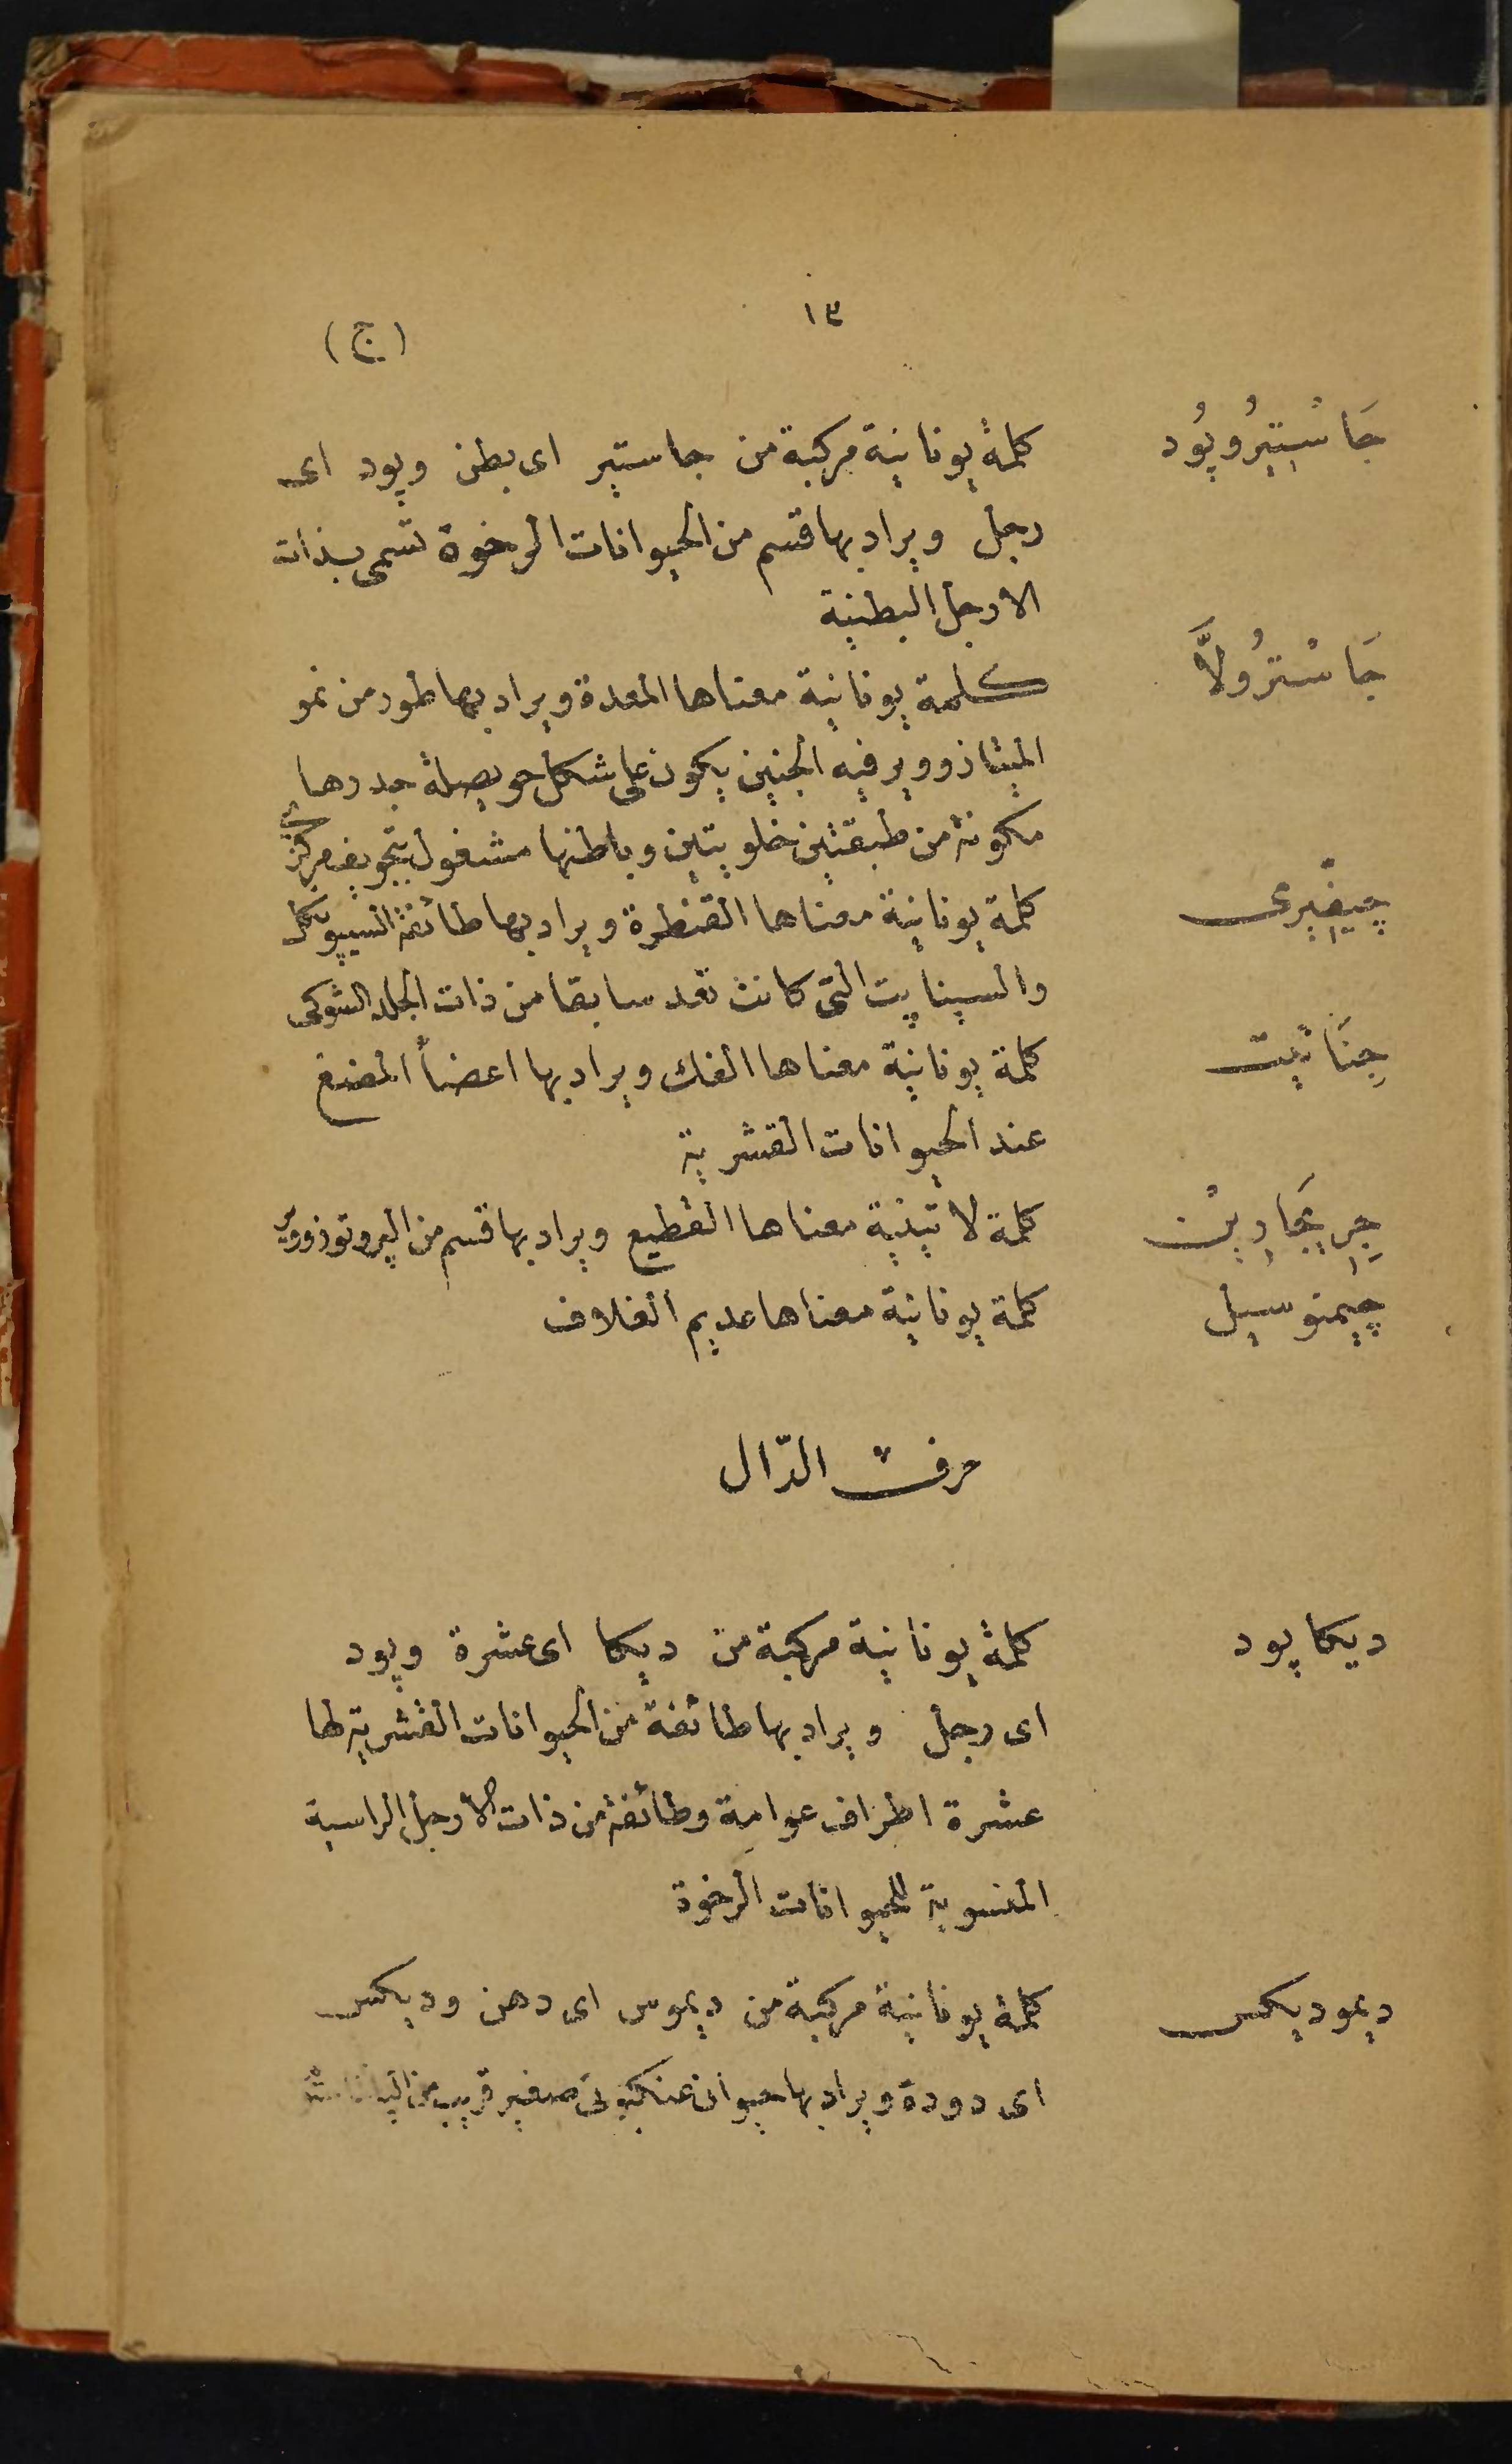 ١٣
(ج)
جَاسْتِيرُوپُود كلمة يونانية مركبة من جاستير اى بطن وپود اى
رجل ويراد بها قسم من الحيوانات الرخوة تسمى بذات
الارجل البطنية
جَاسْترُولاَّ كلمة يونانية معناها المعدة ويراد بها طور من نمو
الميتازووير فيه الجنين يكون على شكل حويصلة جدرها
مكونة من طبقتين خلويتين وباطنها مشغول بتجويف مركزى
چيفيرى كلمة يونانية معناها القنطرة ويراد بها طائفة
والسپناپيت التى كانت تعد سابقا من ذات الجلد الشوكى
جِنَاتيت كلمة يونانية معناها الفك ويراد بها اعضاً المضغ
عند الحيوانات القشرية
جِرِيجَارِينْ كلمة لاتينية معناها القطيع ويراد بها قسم من الپروتوزووير
چيمنوسيل كلمة يونانية معناها عديم الغلاف
حرف الدّال
ديكاپود كلمة يونانية مركبة من ديكا اى عشرة وپود
اى رجل ويراد بها طائفة من الحيوانات القشرية لها
عشرة اطراف عوامة وطائفة من ذات الأرجل الراسية
المنسوبة للحيوانات الرخوة
ديموديكس كلمة يونانية مركبة من ديموس اى دهن وديكس
اى دودة ويراد بها حيوان عنكبوتى صغير قريب من